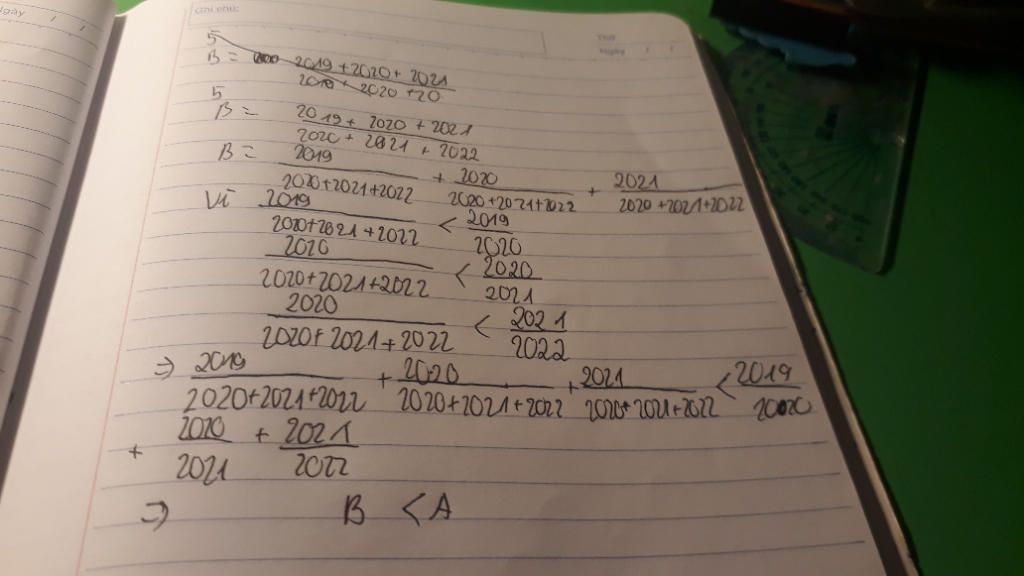 Ngày / /
Ghi chú:
Thứ
Ngày / /
5
B = 2019 + 2020 + 2021
2019 + 2020 + 20
5
B = 2019 + 2020 + 2021
2020 + 2021 + 2022
B = 2019 / 2020+2021+2022 + 2020 / 2020+2021+2022 + 2021 / 2020+2021+2022
Vì 2019 / 2020+2021+2022 < 2019 / 2020
2020 / 2020+2021+2022 < 2020 / 2021
2020 / 2020+2021+2022 < 2021 / 2022
=> 2019 / 2020+2021+2022 + 2020 / 2020+2021+2022 + 2021 / 2020+2021+2022 < 2019 / 2020
+ 2020 / 2021 + 2021 / 2022
=> B < A